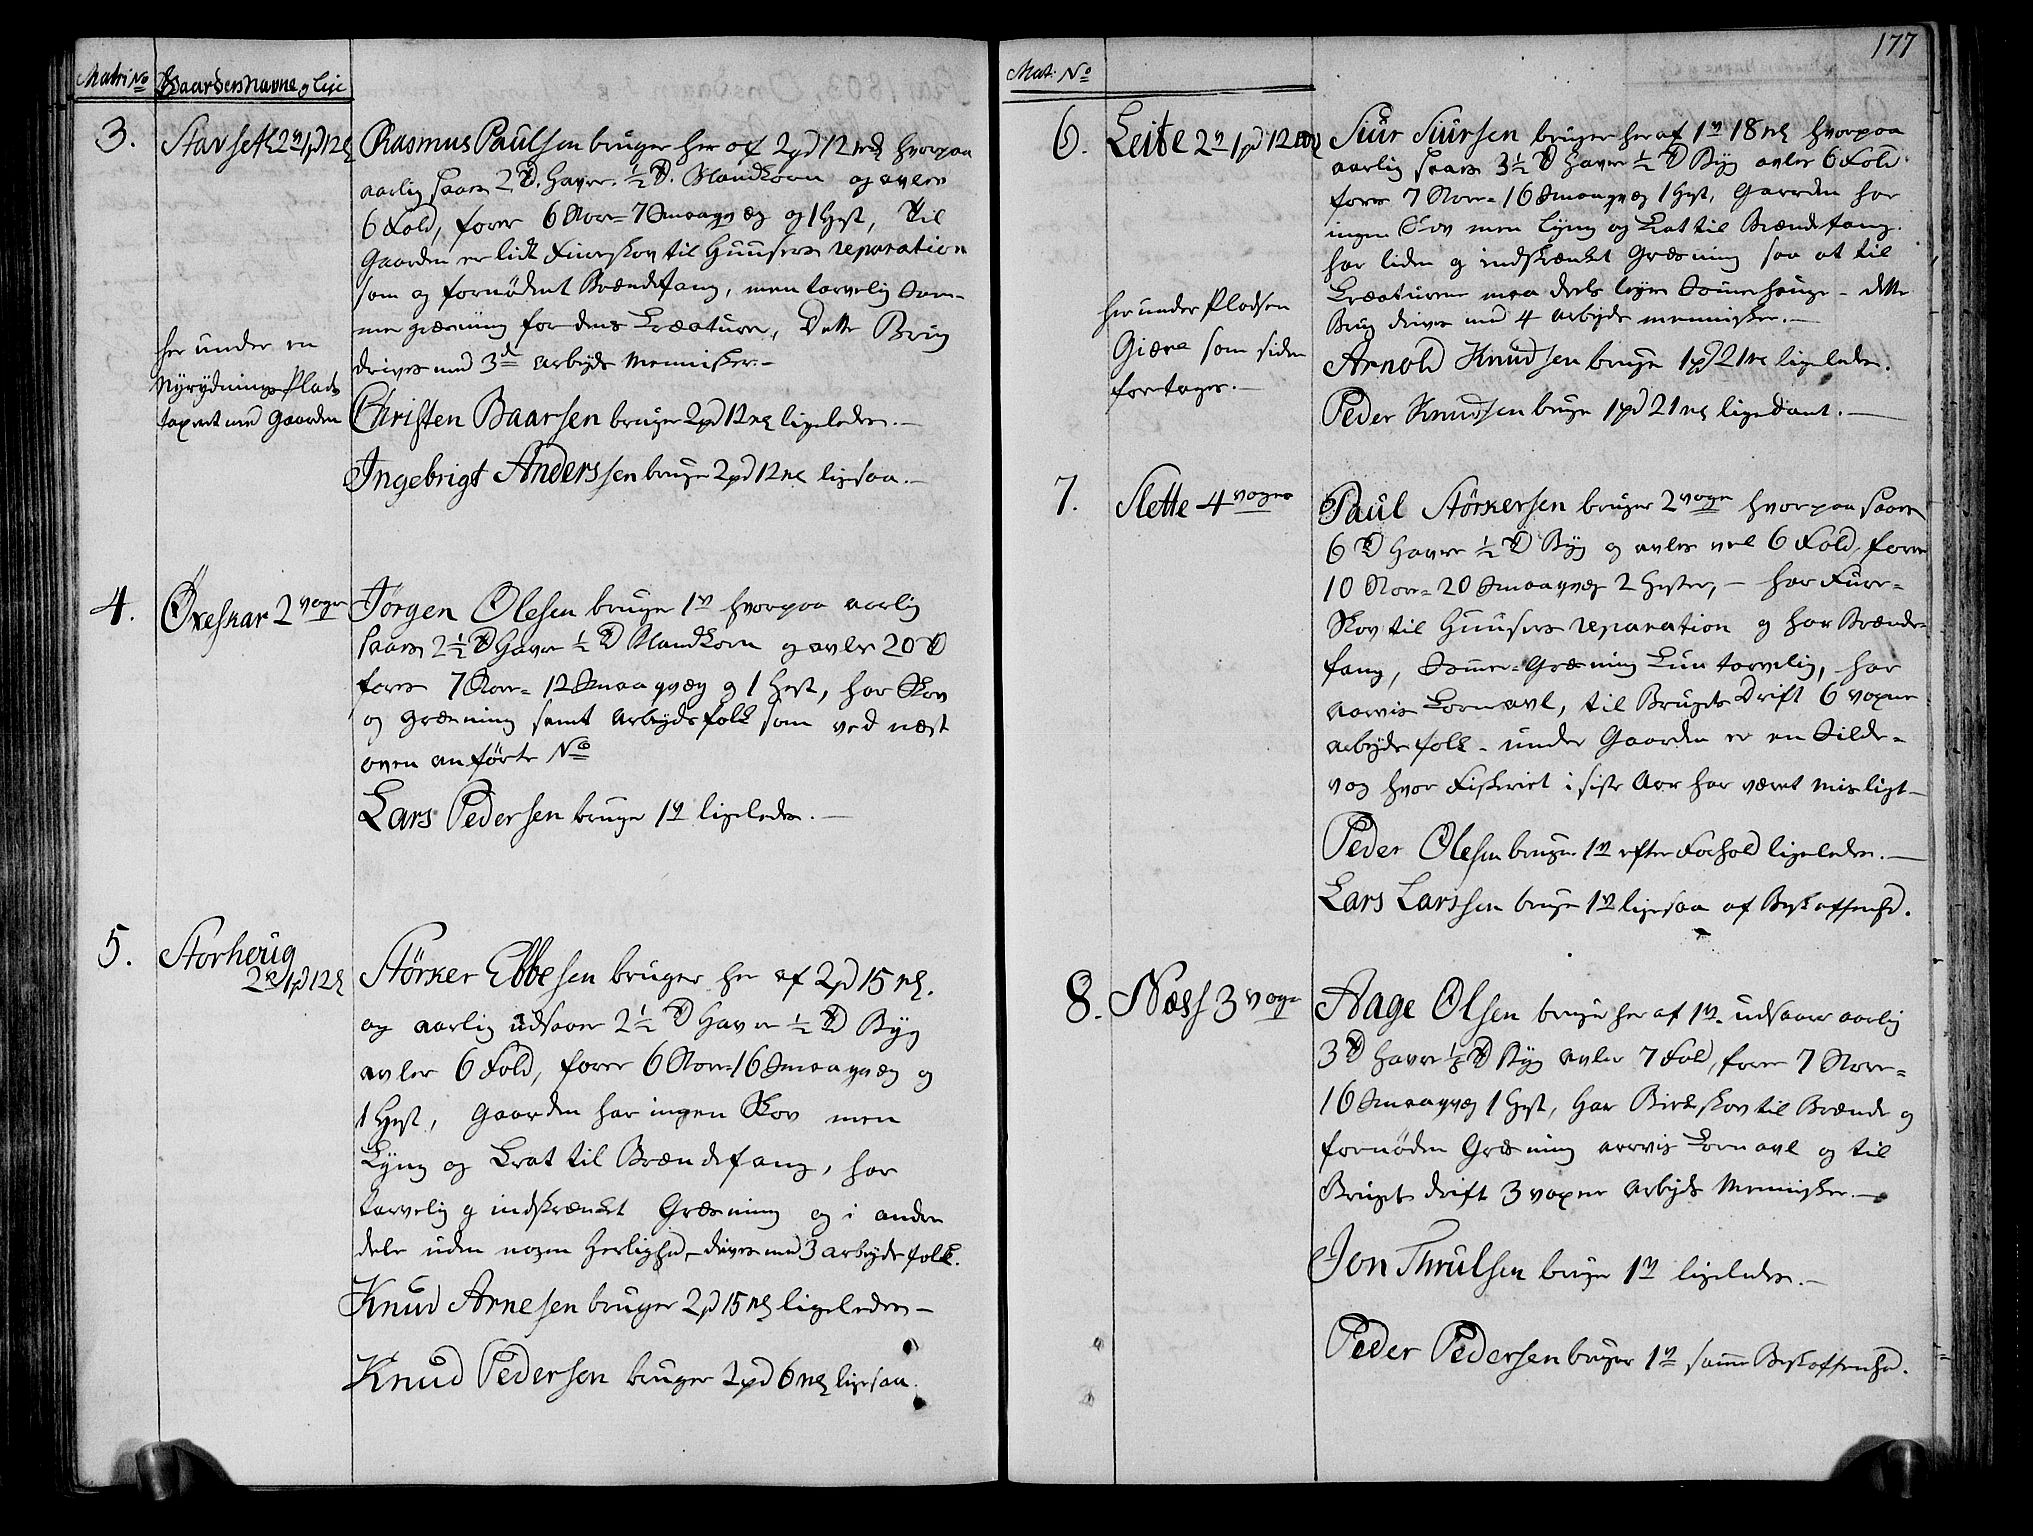 Matri No
Gaardens Navne og Leje
3.
Stavseth 2 v 1 pd 12 mk
Rasmus Paulsen bruger her af 2 pd 12 mk hvorpaa
aarlig saaes 2 Td. Havre ½ Td. Blandkorn og avles
6 Fold, föder 6 Stor= 7 Smaaqvæg og 1 Hest, Til
Gaarden er lidt Furreskov til Huusets reparation
som og fornødent Brændefang, men tarvelig Som-
mer græsning for dens Creature, Dette Brug
drives med 3de arbeyds Mennisker.-
her under en
Nyrydnings Plads
taxeret med Gaarden
Christen Baarsen bruger 2 pd 12 mk ligeledes.-
Ingebrigt Anderssen bruger 2 pd 12 mk ligesaa.-
4.
Öxeskar 2 voger
Jörgen Olesen bruger 1 v hvorpaa aarlig
saaes 2½ Td Havre ½ Td Blandkorn og avler 20 Td
föder 7 Stor= 12 Smaaqvæg og 1 Hest, har Skov
og græsning samt arbeydsfolk som ved næst
oven anførte No
Lars Pedersen bruger 1 v ligeledes.-
5.
Storhoug
2 v 1 pd 12 mk
Störker Ebbesen bruger her af 2 pd 15 mk.
og aarlig udsaaer 2½ Td Havre ½ Td Byg
avler 6 Fold, föder 6 Stor= 16 Smaaqvæg og
1 Hest, Gaarden har ingen Skov men
Lyng og Krat til Brændefang, har
tarvelig og indskrænket Græsning og i andre
dele uden nogen Herlighed,- drives med 3 arbeydsfolk.
Knud Arnesen bruger 2 pd 15 mk ligeledes-
Knud Pedersen bruger 2 pd 6 mk ligesaa.
177
Mat: No
6.
Leite 2 v 1 pd 12 mk
Siur Siursen bruger her af 1 v 18 mk hvorpaa
aarlig saaes 3½ Td Havre ½ Td Byg avler 6 Fold
föder 7 Stor= 16 Smaaqvæg 1 Hest, Gaarden har
ingen Skov men Lyng og Krat til Brændefang.
har liden og indskrænket Græsning saa at til
Creaturene maa deels leyes Somerhauge - dette
Brug drives med 4 arbeyds mennisker.-
her under Pladsen
Giære som siden
foretages.-
Arnold Knudsen bruger 1 pd 21 mk ligeledes.
Peder Knudsen bruger 1 pd 21 mk ligedant.-
7.
Slette 4 voger
Paul Störkersen bruger 2 voger hvorpaa saaes
6 Td Havre ½ Td Byg og avles vel 6 Fold, föder
10 Stor= 20 Smaaqvæg 2 Hester,- har Furre-
Skov til Huusets reparation og har Brænde-
fang, Somer=Græsning kun tarvelig, har
aarvis Kornavl, til Brugets Drift 6 voxne
arbeydsfolk - under Gaarden er en Silde-
vog hvor Fiskeriet i siste Aar har været misligt-
Peder Olesen bruger 1 v efter Forhold ligeledes.-
Lars Larssen bruger 1 v ligesaa af Beskaffenhed.
8.
Næss 3 voger
Aage Olsen bruger her af 1 v. udsaaer aarlig
3 Td Havre ⅛ Td Byg avler 7 Fold, föder 7 Stor=
16 Smaaqvæg 1 Hest, har Birkskov til Brænde og
fornøden Græsning aarvis Kornavl og til
Brugets drift 3 voxne arbeyds Mennisker.-
Jon Thrulsen bruger 1 v ligeledes.-
Peder Pedersen bruger 1 v samme Beskaffenhed.